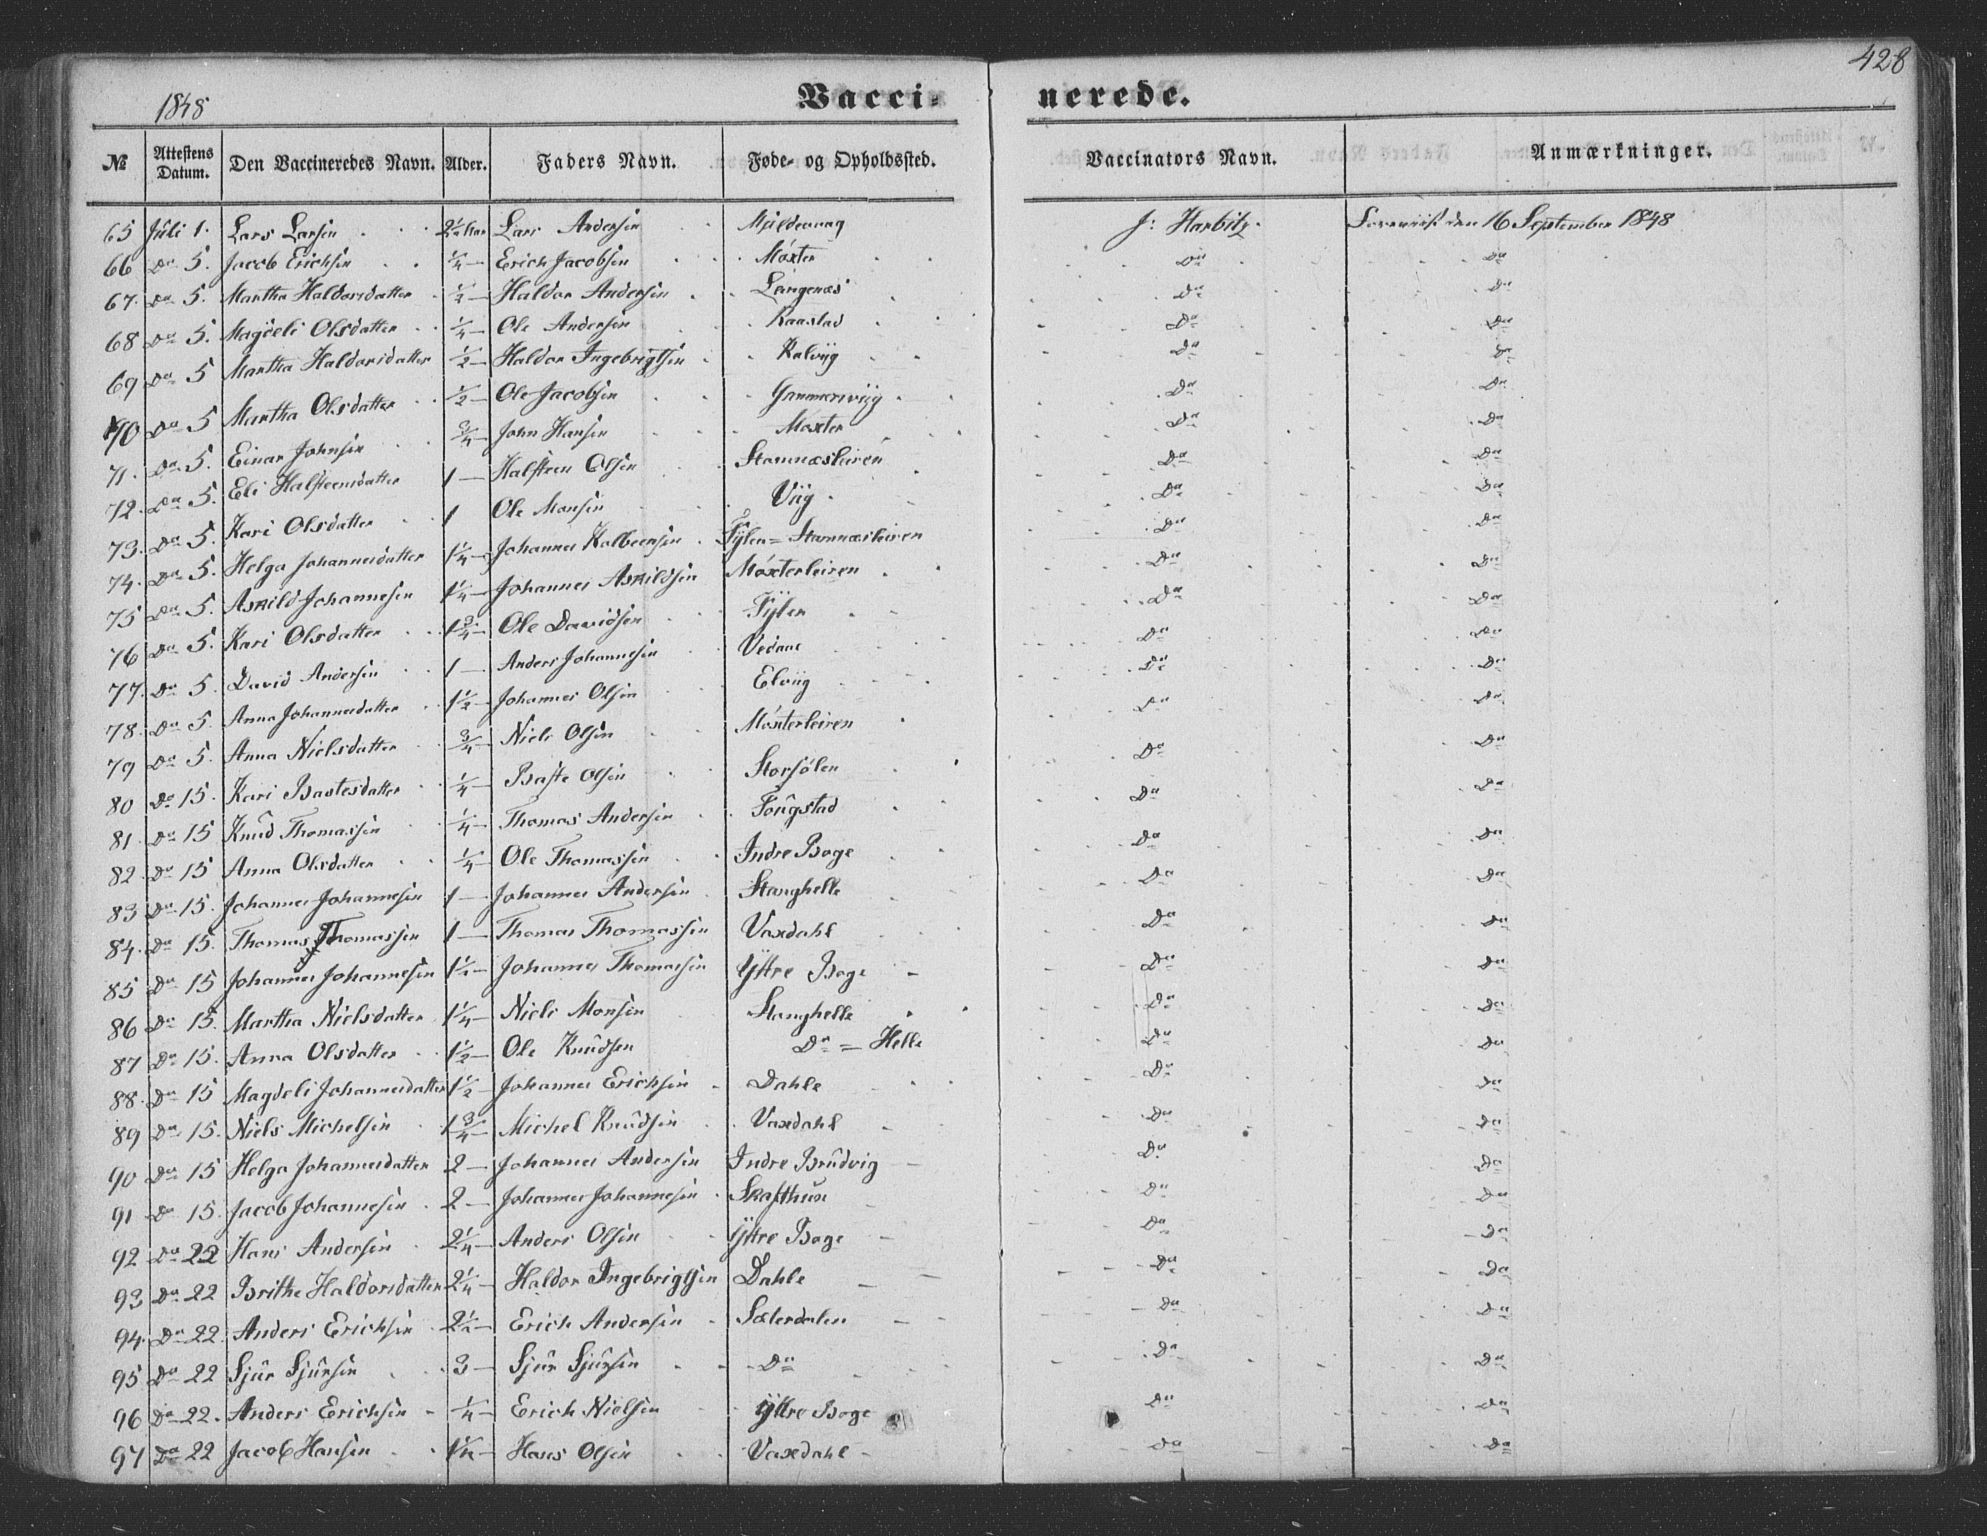 428
1848 Vacci- nerede.
№ Attestens Datum. Den Vaccineredes Navn. Alder. Faders Navn. Føde- og Opholdssted. Vaccinators Navn. Anmærkninger.
65 Juli 1. Lars Larsen 2½ Aar Lars Andersen J: Harbitz. den 16 September 1848
66 Do 5. Jacob Erichsen ¼ — Erich Jacobsen Møxter Do Do
67. Do 5. Martha Haldorsdatter ½ — Haldor Andersen Langenæs Do Do
68 Do 5. Magdeli Olsdatter ¼ — Ole Andersen Kaastad Do Do
69 Do 5 Martha Haldorsdatter ½ — Haldor Ingebrigtsen Kalviig Do Do
70 Do 5 Martha Olsdatter ½ — Ole Jacobsen Gammersviig Do Do
71. Do 5. Einar Johnsen ¾ — John Hansen Moxter Do Do
72. Do 5. Eli Halsteensdatter 1 — Halsteen Olsen Stamnæsleiren Do Do
73. Do 5. Kari Olsdatter 1 Ole Monsen Viig Do Do
74. Do 5. Helga Johannesdatter 1¼ — Johannes Kolbeensen Fylen = Stamnæsleiren Do Do
75 Do 5. Askild Johannesen 1¼ — Johannes Askildsen Møxterleiren Do Do
76 Do 5. Kari Olsdatter 1¾ — Ole Davidsen Fylen Do Do
77. Do 5. David Andersen 1 — Anders Johannesen Vedaae Do Do
78. Do 5. Anna Johannesdatter 1½ — Johannes Olsen Elviig Do Do
79 Do 5. Anna Nielsdatter ¾ — Niels Olsen Møxterleiren Do Do
80 Do 15. Kari Bastesdatter ¼ — Baste Olsen Storsølen Do Do
81. Do 15 Knud Thomassen ¼ — Thomas Andersen Fougstad Do Do
82. Do 15 Anna Olsdatter ¼ — Ole Thomassen Indre Boge Do Do
83 Do 15. Johannes Johannesen 1 — Johannes Andersen Stanghelle Do Do
84. Do 15. Thomas Thomassen 1 — Thomas Thomassen Vaxdahl Do Do
85 Do 15 Johannes Johannesen 1½ — Johannes Thomassen Yttre Boge Do Do
86 Do 15. Martha Nielsdatter 1¼ — Niels Monsen Stanghelle Do Do
87 Do 15. Anna Olsdatter 1½ — Ole Knudsen Do = Helle Do Do
88. Do 15 Magdeli Johannesdatter 1½ — Johannes Erichsen Dahle Do Do
89 Do 15. Niels Michelsen 1¾ — Michel Knudsen Vaxdahl Do Do
90 Do 15 Helga Johannesdatter 2 — Johannes Andersen Indre Brudvig Do Do
91 Do 15. Jacob Johannesen 2 — Johannes Johannesen Skafthun Do Do
92 Do 22 Hans Andersen 2¼ — Anders Olsen Yttre Boge Do Do
93 Do 22 Brithe Haldorsdatter 2¼ — Haldor Ingebrigtsen Dahle Do Do
94. Do 22. Anders Erichsen 2½ — Erich Andersen Sæterdalen Do Do
95 Do 22 Sjur Sjursen 3 — Sjur Sjursen Do Do Do
96 Do 22. Anders Erichsen ¼ — Erich Nielsen Yttre Boge Do Do
97 Do 22 Jacob Hansen 1½ — Hans Olsen Vaxdahl Do Do